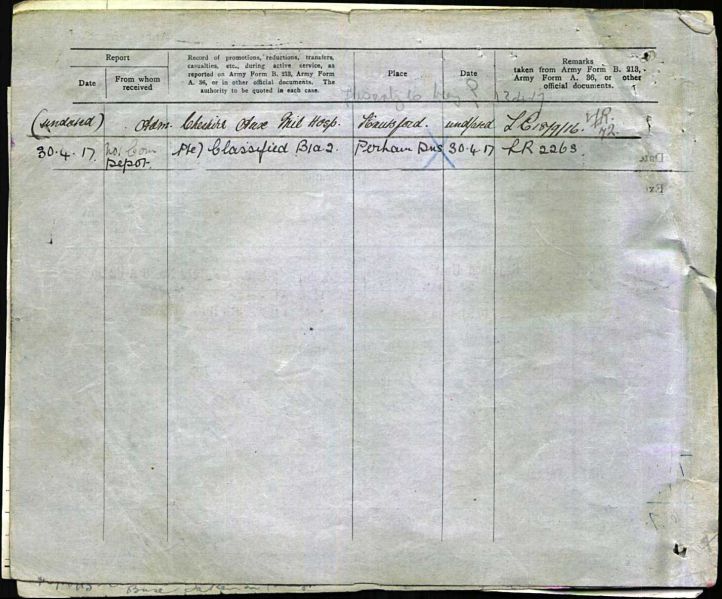 Report
Date
From whom received
Record of promotions, reductions, transfers, casualties, etc., during active service, as reported on Army Form B. 213, Army Form A. 36, or in other official documents. The authority to be quoted in each case.
Place
Date
Remarks
taken from Army Form B. 213, Army Form A. 36, or other official documents.
(undated) Adm. Cheshire Mil Hosp. undated
30.4.17 Depot. Classified B1a2. Perham Dns 30.4.17 LR 2263